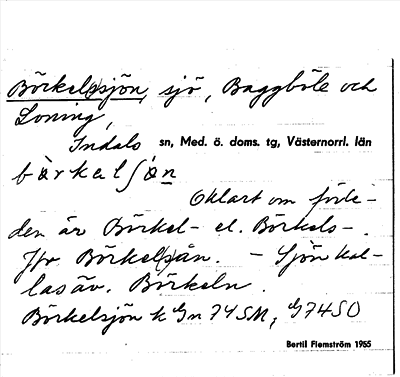 Börkel(s)sjön, sjö, Baggböle och
Loning,
Indals sn, Med. ö. doms. tg, Västernorrl. län
Oklart om förle-
den är Börkel- el. Börkels-.
Jfr Börkel(s)ån. - Sjön kal-
las äv. Börkeln.
Börkelsjön k Gn 74SM, G74SO
Bertil Flemström 1955